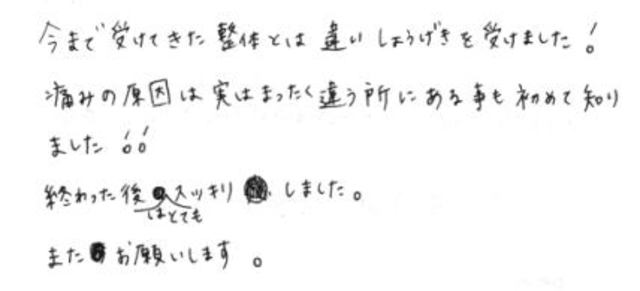 今まで受けてきた整体とは違いしょうげきを受けました!
痛みの原因は実はまったく違う所にある事も初めて知り
ました!!
終わった後はとてもスッキリしました。
またお願いします。